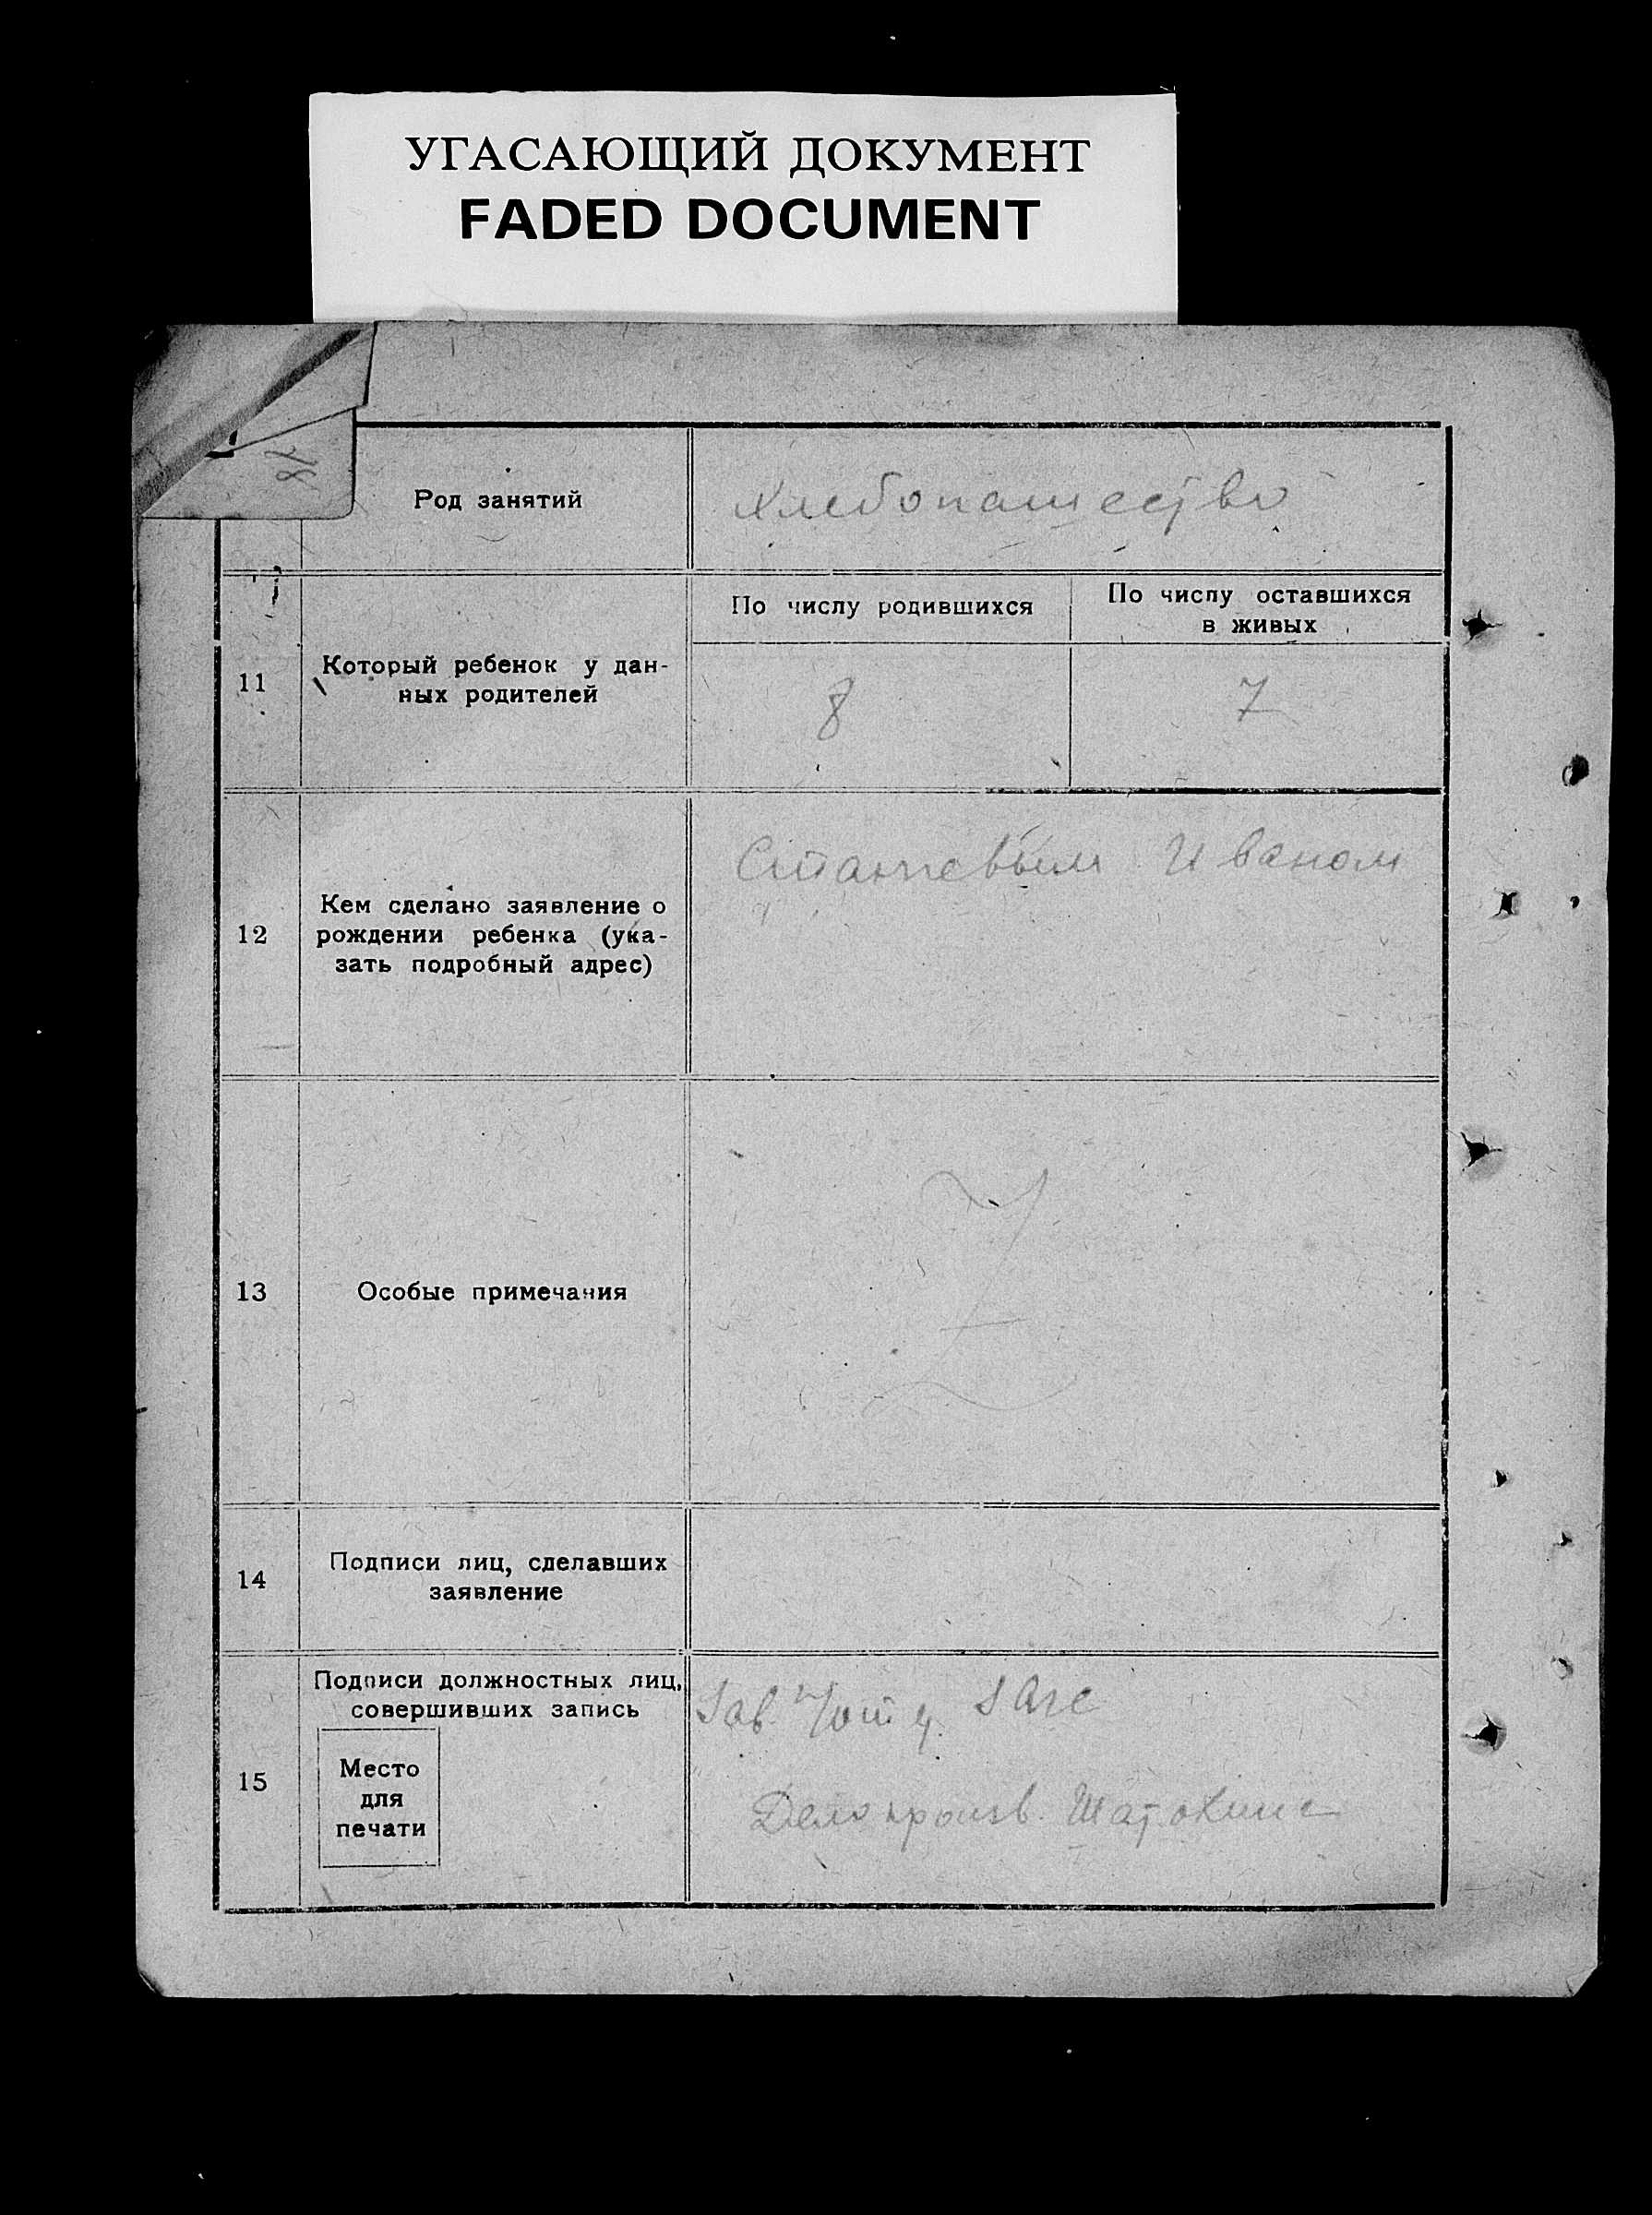 УГАСАЮЩИЙ ДОКУМЕНТ
FADED DOCUMENT
Род занятий
Хлебопашество
11
Который ребенок у дан-
ных родителей
По числу родившихся
По числу оставшихся
в живых
8
7
12
Кем сделано заявление о
рождении ребенка (ука-
зать подробный адрес)
Иваном
13
Особые примечания
14
Подписи лиц, сделавших
заявление
15
Подписи должностных лиц,
совершивших запись
Место
для
печати
Зав. ЗАГС
Делопроизв.